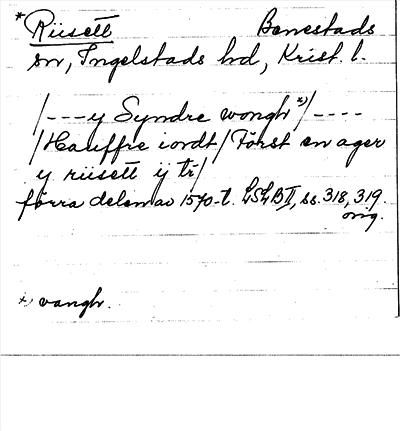 *Riisett Bonestads
sn, Ingelstads hd, Krist. l.
/---y Syndre wongh x)/----
/Hauffre iordt/Först en ager
y riisett ij tr/
förra delen av 1570-t. LSLB II, ss. 318, 319.
orig.
x) vangh.